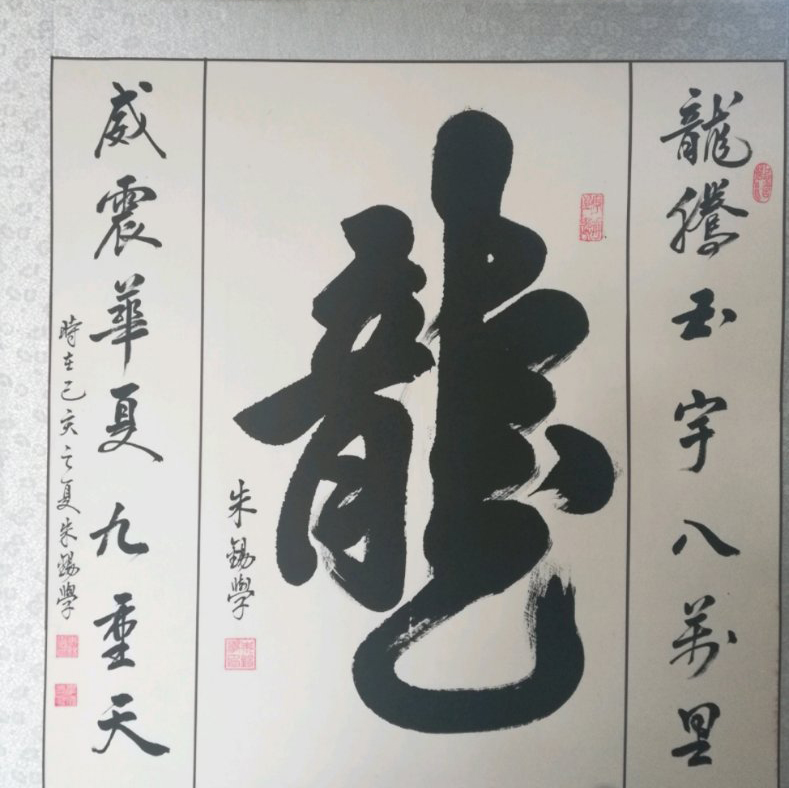 龍騰玉宇八萬里
龍
朱錫學
威震華夏九重天
時在己亥之夏朱錫學